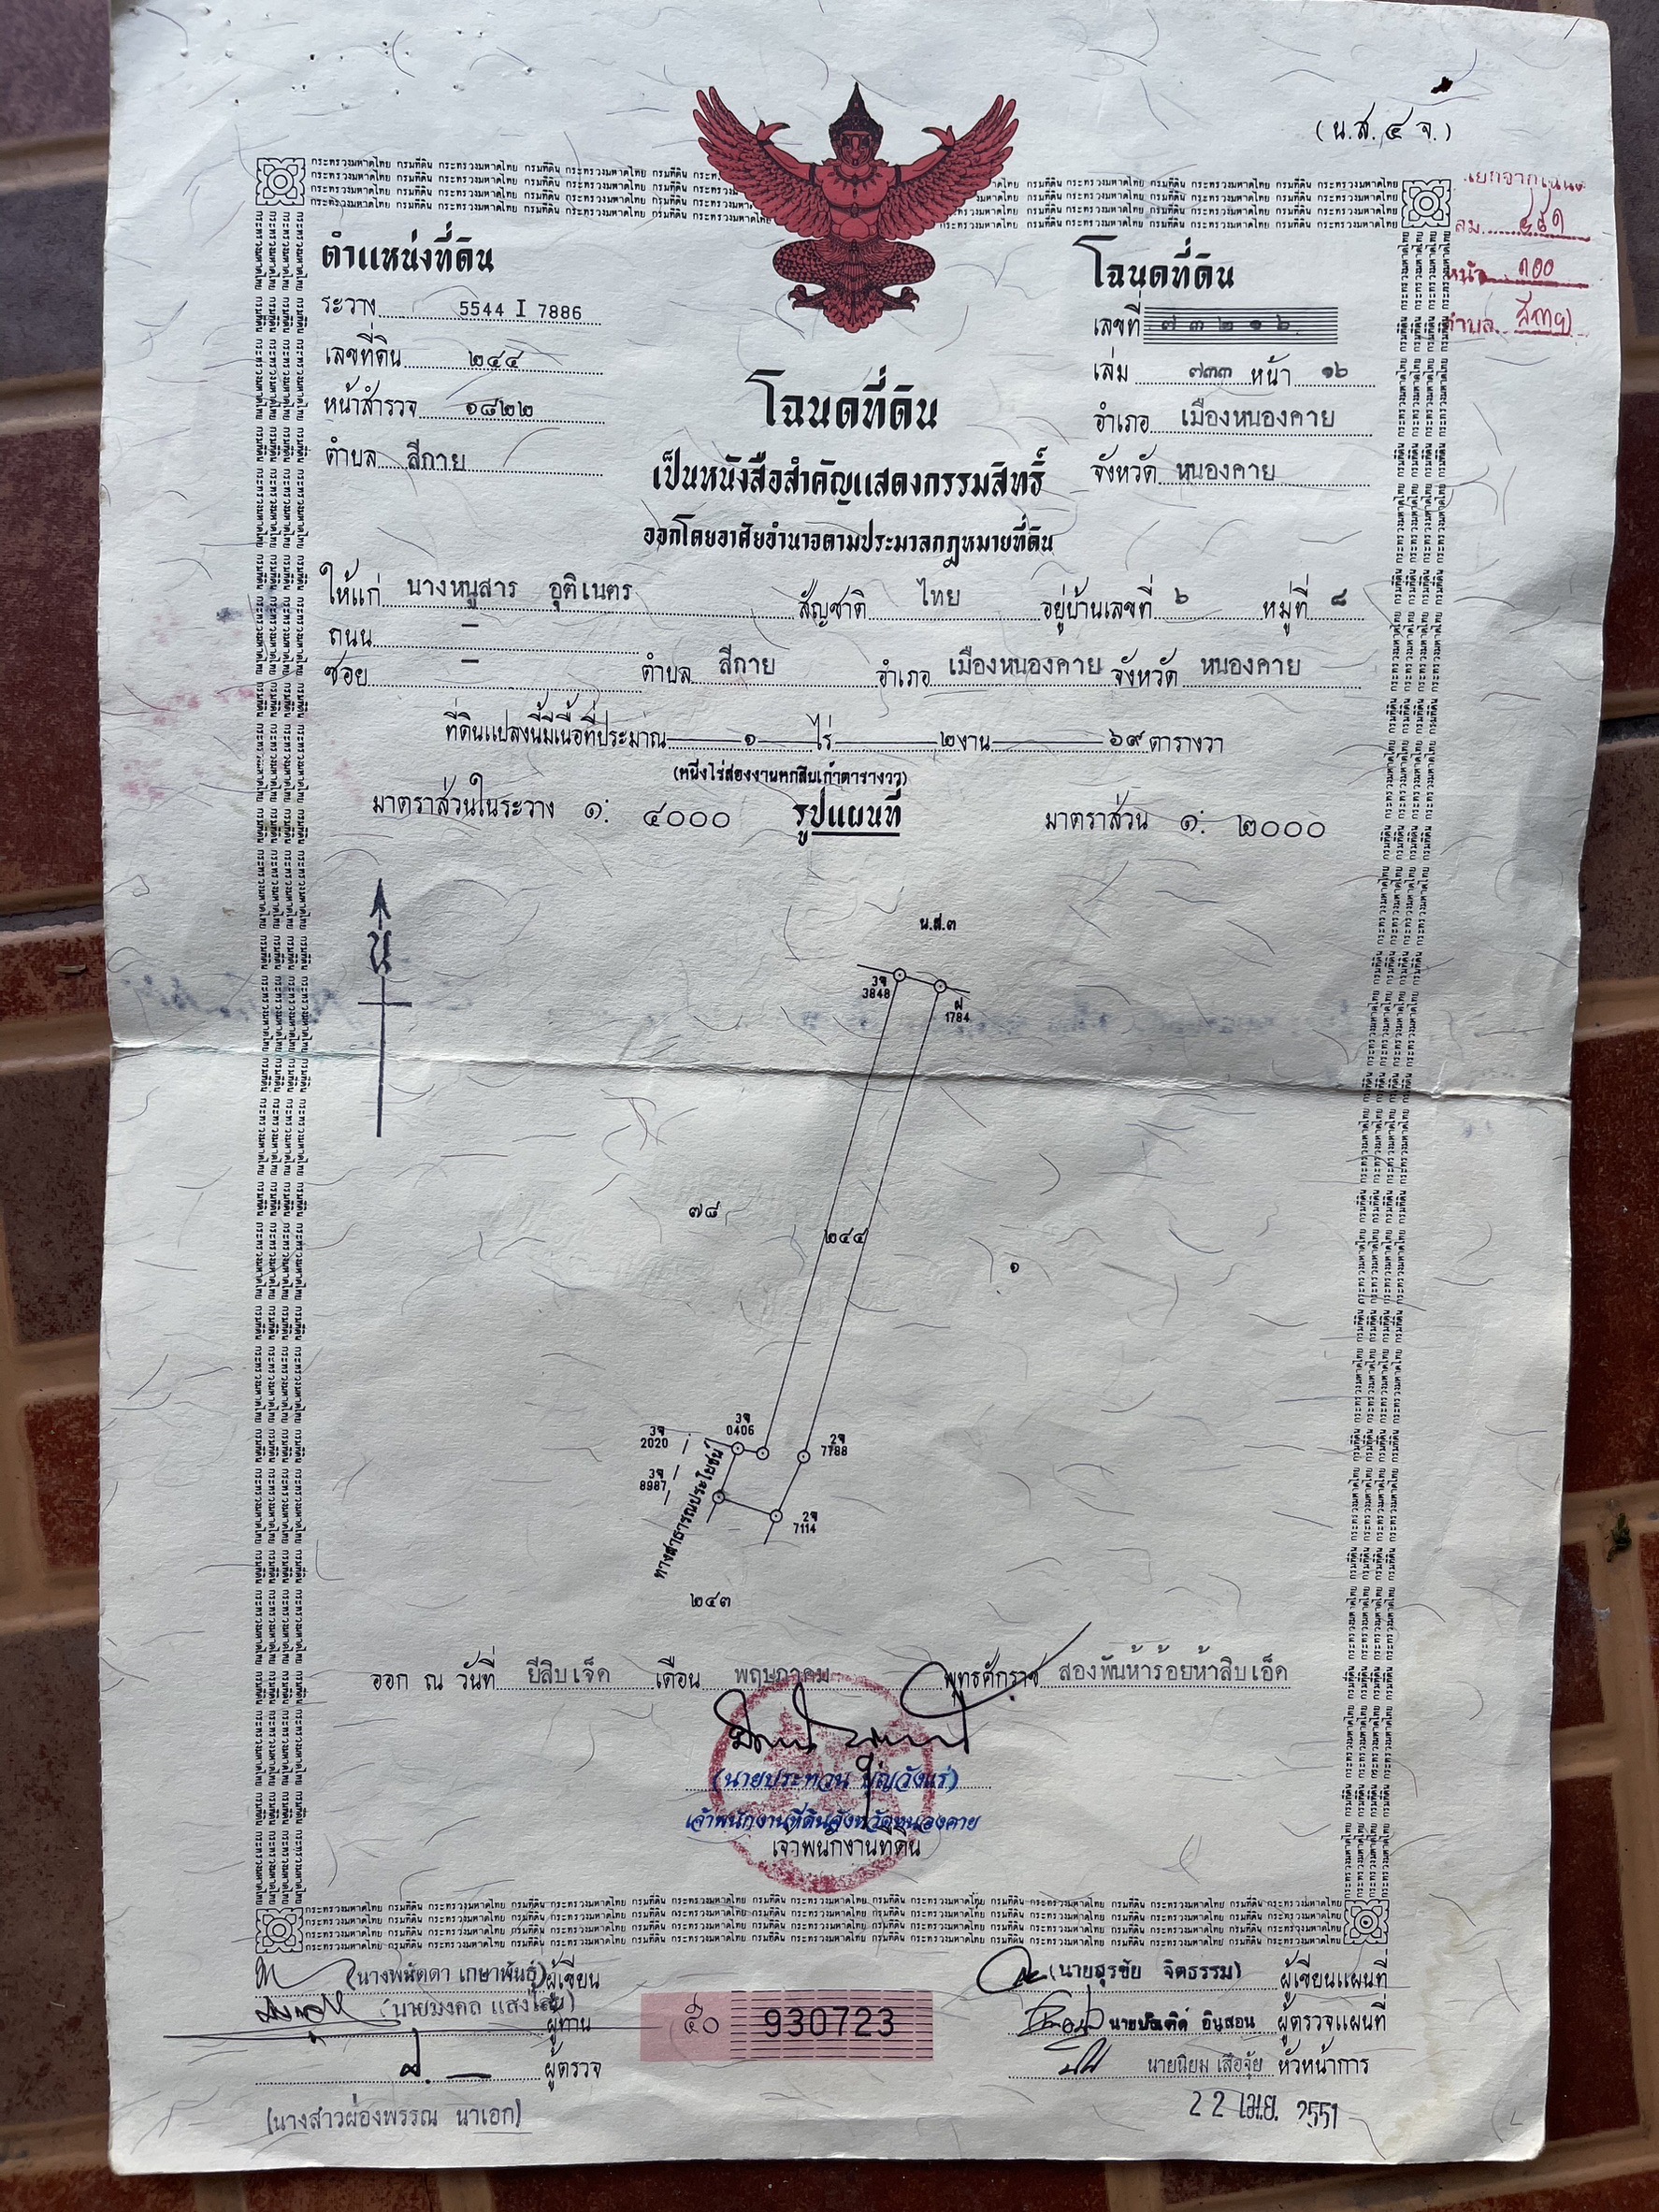 (น.ส.๔ จ.)
ตำแหน่งที่ดิน
ระวาง 5544 I 7886
เลขที่ดิน ๒๔๔
หน้าสำรวจ ๑๘๒๒
ตำบล สีกาย
โฉนดที่ดิน
เลขที่ ๗๓๒๑๖
เล่ม ๗๓๓ หน้า ๑๖
อำเภอ เมืองหนองคาย
จังหวัด หนองคาย
หน้า ๑๐๐
ตำบล สีกาย
โฉนดที่ดิน
เป็นหนังสือสำคัญแสดงกรรมสิทธิ์
ออกโดยอาศัยอำนาจตามประมวลกฎหมายที่ดิน
ให้แก่ นางหนูสาร อุติเนตร สัญชาติ ไทย อยู่บ้านเลขที่ ๖ หมู่ที่ ๘
ถนน –
ซอย – ตำบล สีกาย อำเภอ เมืองหนองคาย จังหวัด หนองคาย
ที่ดินแปลงนี้มีเนื้อที่ประมาณ ๑ ไร่ ๒ งาน ๖๙ ตารางวา
(หนึ่งไร่สองงานหกสิบเก้าตารางวา)
มาตราส่วนในระวาง ๑: ๔๐๐๐ รูปแผนที่ มาตราส่วน ๑: ๒๐๐๐
น
น.ส.๓
3จ
3848
ฝ
1784
๗๘
๒๔๔
๑
3จ
2020
3จ
0406
2จ
7788
3จ
8987
ทางสาธารณประโยชน์
2จ
7114
๒๔๓
ออก ณ วันที่ ยี่สิบเจ็ด เดือน พฤษภาคม พุทธศักราช สองพันห้าร้อยห้าสิบเอ็ด
(นายประทวน บุญวังแร่)
เจ้าพนักงานที่ดินจังหวัดหนองคาย
เจ้าพนักงานที่ดิน
กระทรวงมหาดไทย กรมที่ดิน
(นางพนัดดา เกษาพันธุ์) ผู้เขียน
(นายมงคล แสงใสย) ผู้ทาน
ผู้ตรวจ
(นางสาวผ่องพรรณ นาเอก)
๕๐ 930723
(นายสุรชัย จิตธรรม) ผู้เขียนแผนที่
อินสอน ผู้ตรวจแผนที่
นายนิยม เสือจุ้ย หัวหน้าการ
22 เม.ย. 2551